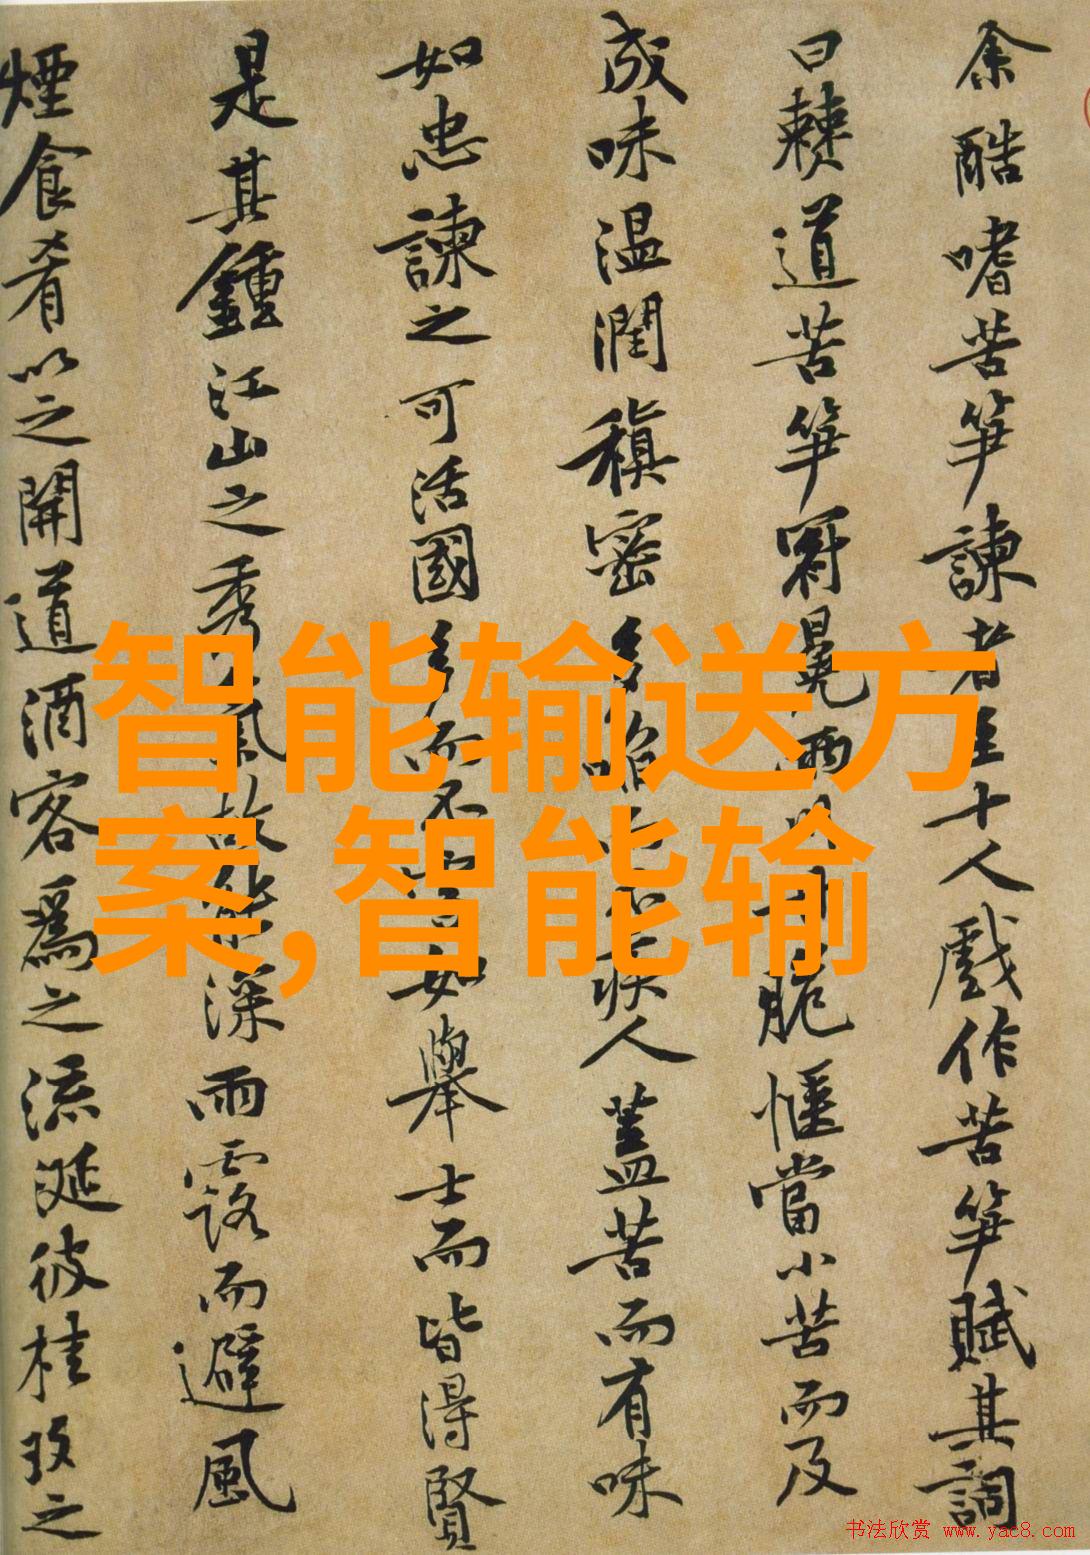 余酷嗜苦笋諫者至十人戲作苦笋賦其詞
曰僰道苦笋冠冕兩川甘脆愜當小苦而及
成味温潤稹密多啗而不疾人蓋苦而有味
如忠諫之可活國多而不害如舉士而皆得賢
是其鍾江山之秀氣故能深雨露而避風
煙食肴以之開道酒客爲之流涎彼桂玫之
智能输送方
案,智能输
书法欣赏 www.yac8.com